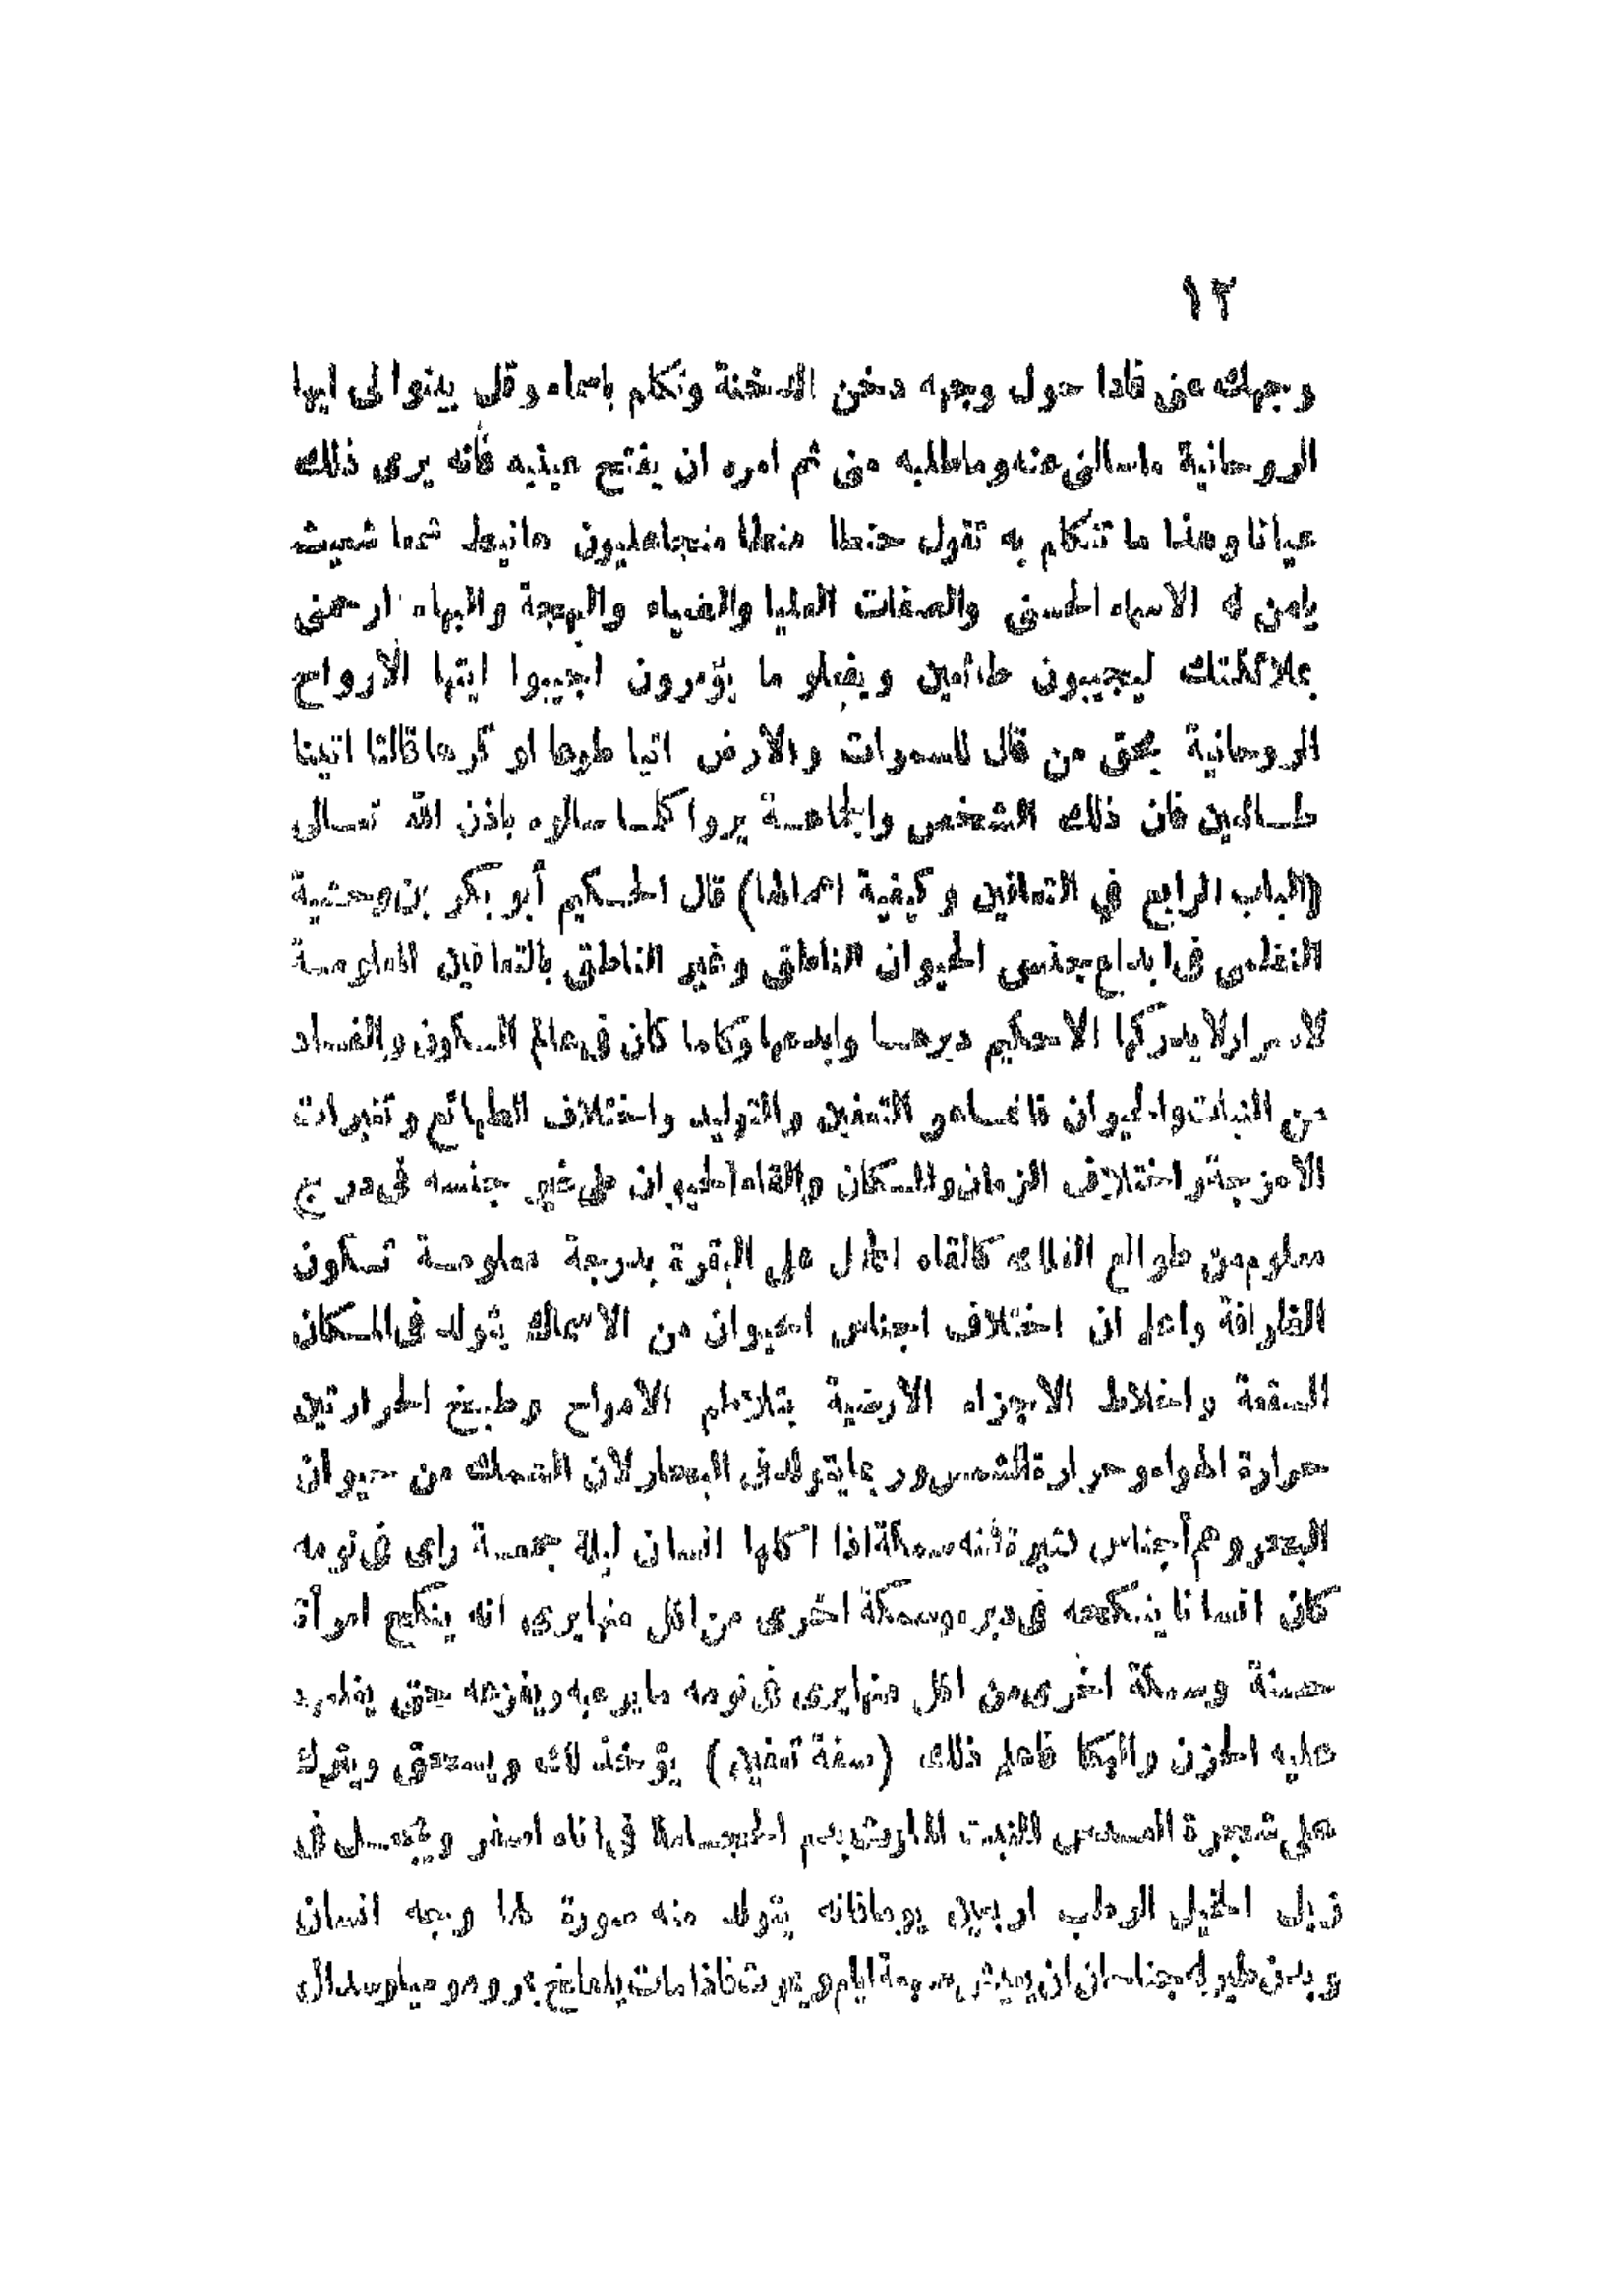 ١٢
وجهك عنى فاذا حول وجهه دخن الدخنة وتكلم باسماه وقل بينوا لى ايها
الروحانية ماسالنى عنه وماطلبه منى ثم امره ان يفتح عينيه فأنه يرى ذلك
عيانا وهذا ما تتكلم به تقول
يامن له الاسماء الحسنى والصفات العليا والضياء والبهجة والبهاء ارحمنى
بملائكتك ليجيبون طائعين ويفعلو ما يؤمرون اجيبوا ايتها الأرواح
الروحانية بحق من قال للسموات والارض اتيا طوعا او كرها قالتا اتينا
طـائعين فان ذلك الشخص والجماعـة يروا كلـما سالوه باذن الله تعـالى
(الباب الرابع في التعافين وكيفية اعمالها) قال الحـكيم أبو بكر بن وحشية
النبطى فى ابداع جنس الحيوان الناطق وغير الناطق بالتعافين المعلومـة
لاسرار لا يدركها الا حكيم دبرهـا وابدعها وكلما كان فى عالم الـكون والفساد
من النبات والحيوان فاغـاهو التعفين والتوليد واختلاف الطبائع وتغيرات
الامزجة واختلاف الزمان والمـكان والقاء الحيوان على غير جنسه فى درج
معلوم من طوالع الفلك كالقاء الجمل على البقرة بدرجة معلومـة تـكون
الظرافة واعلم ان اختلاف اجناس الحيوان من الاسماك يتولد فى المـكان
العفنة واخلاط الاجزاء الارضية بتلاطم الامواج وطبخ الحرارتين
حرارة الهواء وحرارة الشمس وربما يتولد فى البحار لان السمك من حيوان
البحر وهم أجناس كثيرة فنه سمكة اذا اكلها انسان ليلة جمعـة راى فى نومه
كان انسانا ينـكحه فى دبره وسمكة اخرى من اكل منها يرى انه ينكح امرأة
حسنة وسمكة اخرى من اكل منها يرى فى نومه ما يرعبه ويفزعه حتى
عليه الحزن والبكا فاعلم ذلك (صفة تعفين) يؤخذ لك ويسحق ويترك
على شجرة العـدس النبت بدم الحجـامة فى اناء اصفر ويجعـل فى
زبل الخيل الرطب اربعين يوما فانه يتولد منه صورة لها وجه انسان
وبدن طير له جناحـان يعيش سبعة ايام ويموت فاذا مات